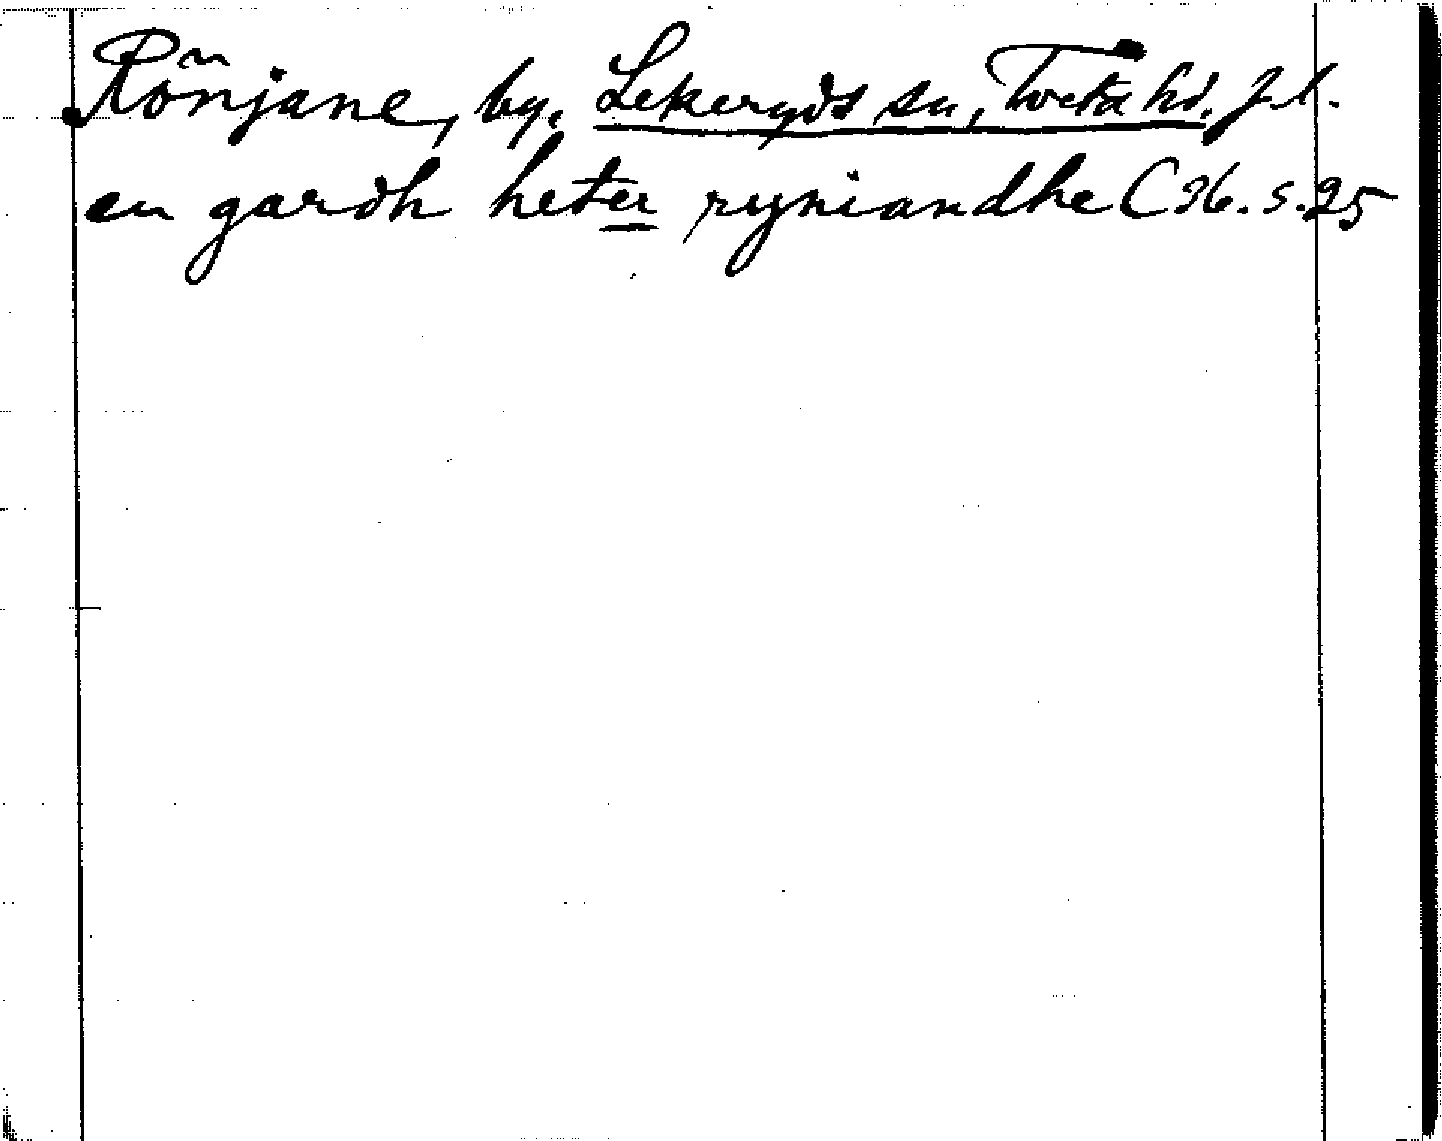 Rönjane, by. Lekeryds sn, Tveta hd. J. l.
en gardh heter ryniandhe C 36. s. 25